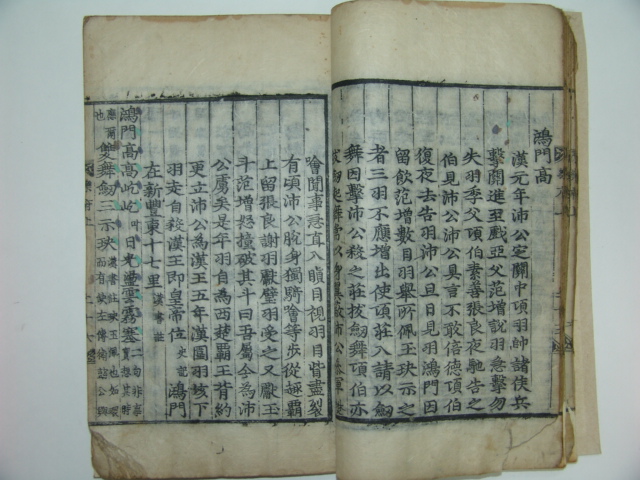 鴻門高
漢元年沛公定關中項羽帥諸侯兵
擊關進至戲亞父范增說羽急擊勿
失羽季父項伯素善張良夜馳告之
伯見沛公沛公具言不敢倍德項伯
復夜去告羽沛公旦日見羽鴻門因
留飲范增數目羽舉所佩玉玦示之
者三羽不應增出使項莊入請以劒
舞因擊沛公殺之莊拔劒舞項伯亦
拔劒起舞常以身翼蔽沛公
噲聞事急直入瞋目視羽目眥盡裂
有頃沛公脫身獨騎噲等步從趣霸
上留張良謝羽獻璧羽受之又獻玉
斗范增怒撞破其斗曰吾屬今為沛
公虜矣是年羽自為西楚霸王背約
更立沛公為漢王五年漢圍羽垓下
羽走自殺漢王即皇帝位 史記 鴻門
在新豐東十七里 漢書註
鴻門高高屹屹日光盪雲霧塞
雙舞劒三示玦